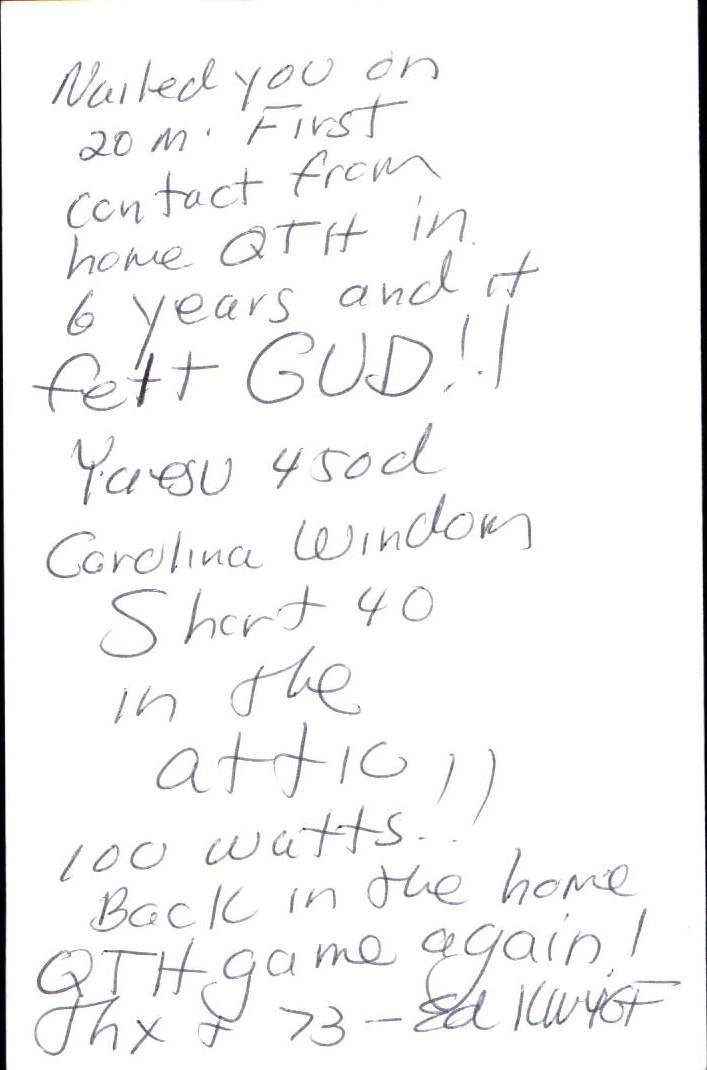 Nailed you on
20 m. First
contact from
home QTH in
6 years and it
felt GUD!!
Yaesu 450d
Carolina Windom
Short 40
in the
attic !!
100 watts!!
Back in the home
QTH game again!
thx + 73 - Ed KW4GF